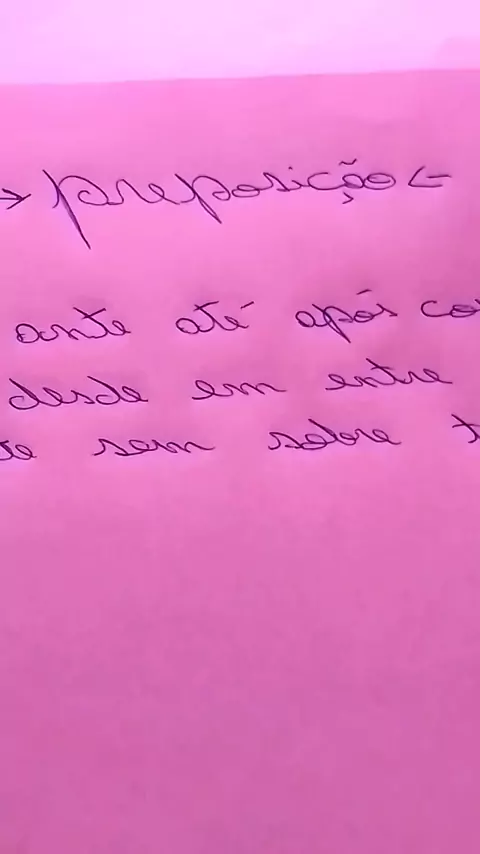 → preposição ←
ante até após
desde em entre
sem sobre